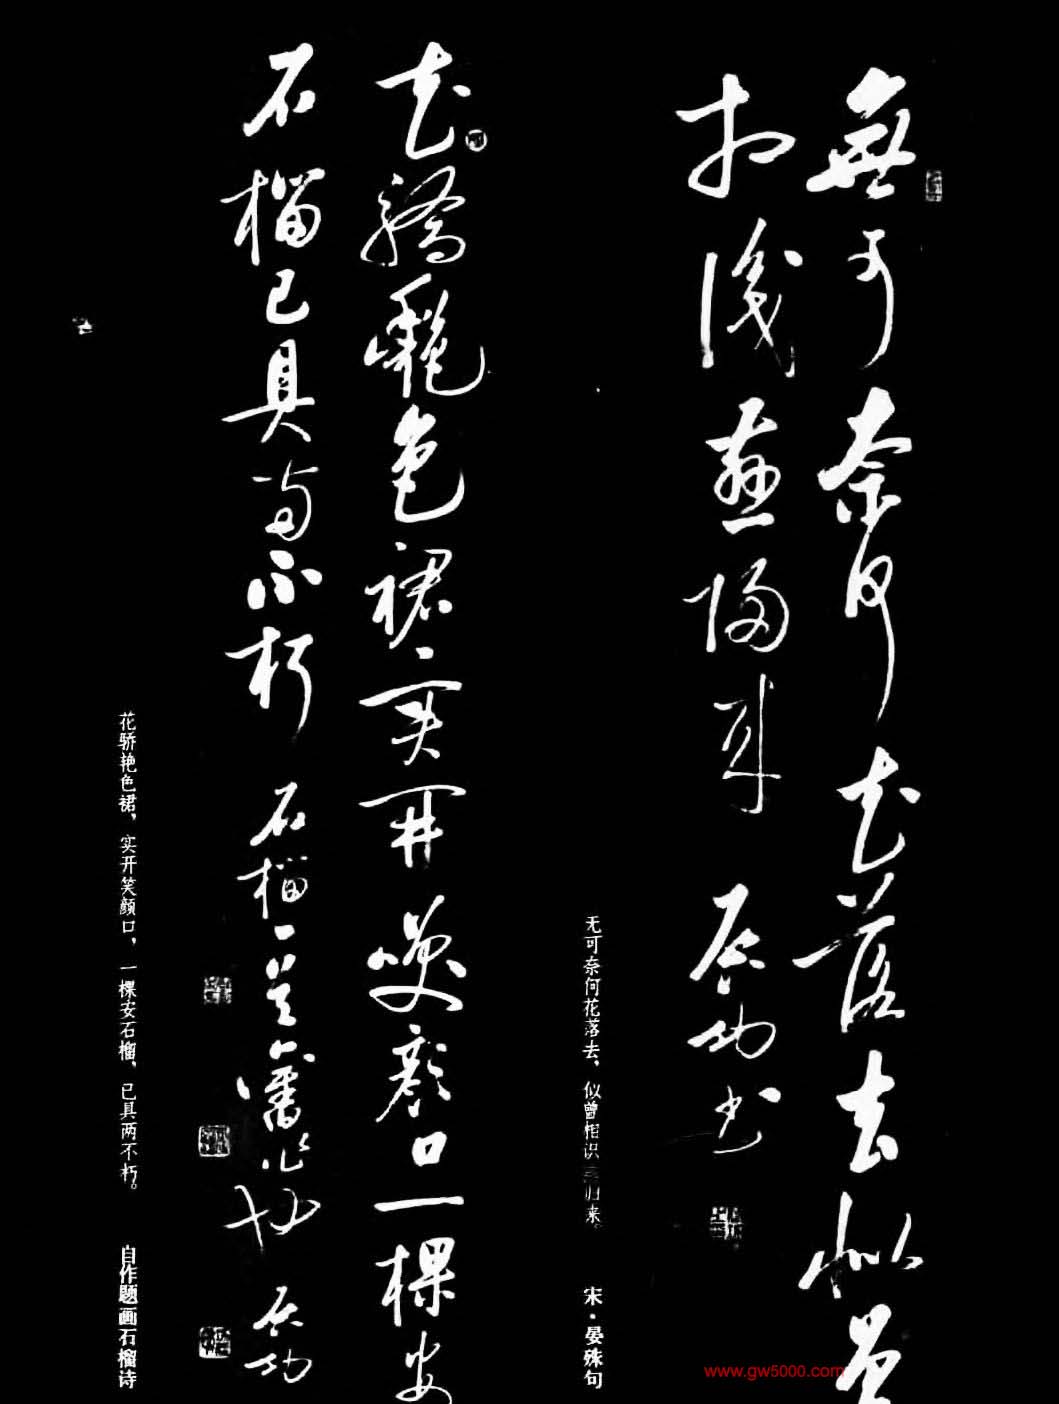 無可奈何花落去似曾
相識燕歸來 启功书
无可奈何花落去，似曾相识燕归来。 宋·晏殊句
花骄艳色裙实开笑颜口一棵安
石榴已具两不朽 石榴一首旧作 启功
花骄艳色裙，实开笑颜口，一棵安石榴，已具两不朽。 自作题画石榴诗
www.gw5000.com